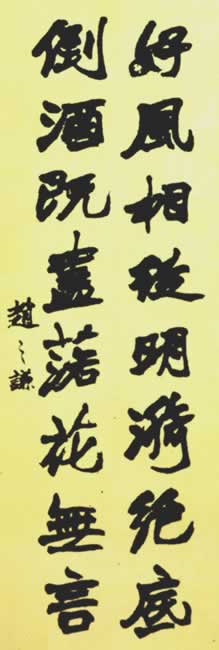 好風相從明漪絕底
倒酒既盡落花無言
趙之謙